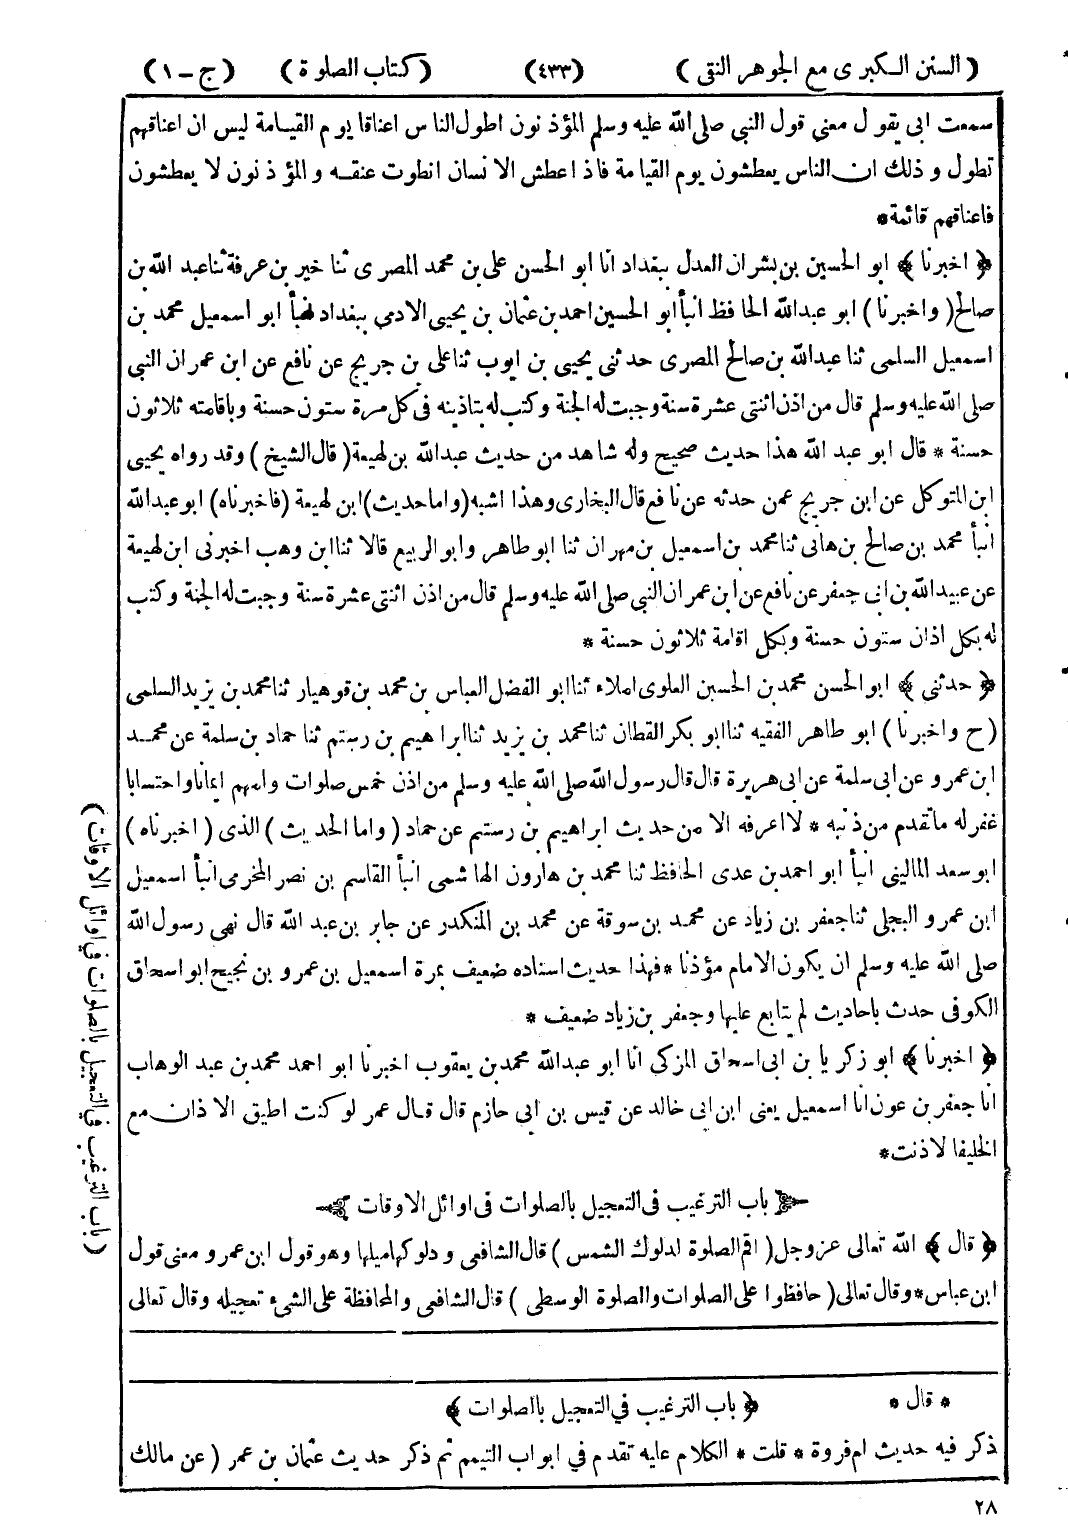 ( السنن الكبرى مع الجوهر النقى ) (٤٣٣) ( كتاب الصلوة ) ( ج - ١ )
سمعت ابى يقول معنى قول النبى صلى الله عليه وسلم المؤذنون اطول الناس اعناقا يوم القيامة ليس ان اعناقهم
تطول و ذلك ان الناس يعطشون يوم القيامة فاذا عطش الانسان انطوت عنقه و المؤذنون لا يعطشون
فاعناقهم قائمة*
﴿ اخبرنا ﴾ ابو الحسين بن بشران العدل ببغداد انا ابو الحسن على بن محمد المصرى ثنا خير بن عرفة ثنا عبد الله بن
صالح ( واخبرنا ) ابو عبدالله الحافظ انبأ ابو الحسين احمد بن عثمان بن يحيى الادمى ببغداد ابو اسمعيل محمد بن
اسمعيل السلمى ثنا عبدالله بن صالح المصرى حدثنى يحيى بن ايوب ثنا على بن جريج عن نافع عن ابن عمر ان النبى
صلى الله عليه وسلم قال من اذن اثنتى عشرة سنة وجبت له الجنة وكتب له بتاذينه فى كل مرة ستون حسنة وباقامته ثلاثون
حسنة * قال ابو عبد الله هذا حديث صحيح وله شاهد من حديث عبدالله بن لهيعة ( قال الشيخ ) وقد رواه يحيى
ابن المتوكل عن ابن جريج عمن حدثه عن نافع قال البخارى وهذا اشبه (واما حديث) ابن لهيعة (فاخبرناه) ابو عبدالله
انبأ محمد بن صالح بن هانى ثنا محمد بن اسمعيل بن مهران ثنا ابو طاهر و ابو الربيع قالا ثنا ابن وهب اخبرنى ابن لهيعة
عن عبيد الله بن ابى جعفر عن نافع عن ابن عمر ان النبى صلى الله عليه وسلم قال من اذن اثنتى عشرة سنة وجبت له الجنة وكتب
له بكل اذان ستون حسنة وبكل اقامة ثلاثون حسنة *
﴿ حدثنى ﴾ ابو الحسن محمد بن الحسين العلوى املاء ثنا ابو الفضل العباس بن محمد بن قوهيار ثنا محمد بن يزيد السلمى
( ح واخبرنا ) ابو طاهر الفقيه ثنا ابو بكر القطان ثنا محمد بن يزيد ثنا ابراهيم بن رستم ثنا حماد بن سلمة عن محمد
ابن عمرو عن ابى سلمة عن ابى هريرة قال قال رسول الله صلى الله عليه وسلم من اذن خمس صلوات وامهم ايمانا واحتسابا
غفر له ما تقدم من ذنبه * لا اعرفه الا من حديث ابراهيم بن رستم عن حماد ( واما الحديث ) الذى ( اخبرناه )
ابو سعد المالينى انبأ ابو احمد بن عدى الحافظ ثنا محمد بن هارون الهاشمى انبأ القاسم بن نصر المخرمى انبأ اسمعيل
ابن عمرو البجلى ثنا جعفر بن زياد عن محمد بن سوقة عن محمد بن المنكدر عن جابر بن عبد الله قال نهى رسول الله
صلى الله عليه وسلم ان يكون الامام مؤذنا * فهذا حديث اسناده ضعيف بمرة اسمعيل بن عمرو بن نجيح ابو اسحاق
الكوفى حدث باحاديث لم يتابع عليها وجعفر بن زياد ضعيف *
﴿ اخبرنا ﴾ ابو زكريا بن ابى اسحاق المزكى انا ابو عبدالله محمد بن يعقوب اخبرنا ابو احمد محمد بن عبد الوهاب
انا جعفر بن عون انا اسمعيل يعنى ابن ابى خالد عن قيس بن ابى حازم قال قال عمر لو كنت اطيق الاذان مع
الخليفا لاذنت*
باب الترغيب فى التعجيل بالصلوات فى اوائل الاوقات
﴿ قال ﴾ الله تعالى عزوجل ( اقم الصلوة لدلوك الشمس ) قال الشافعى و دلوكها ميلها وهو قول ابن عمر و معنى قول
ابن عباس* وقال تعالى ( حافظوا على الصلوات والصلوة الوسطى ) قال الشافعى والمحافظة على الشىء تعجيله وقال تعالى
( باب الترغيب فى التعجيل بالصلوات فى اوائل الاوقات )
* قال * ﴿ باب الترغيب في التعجيل بالصلوات ﴾
ذكر فيه حديث ام فروة * قلت * الكلام عليه تقدم في ابواب التيمم ثم ذكر حديث عثمان بن عمر ( عن مالك
٢٨